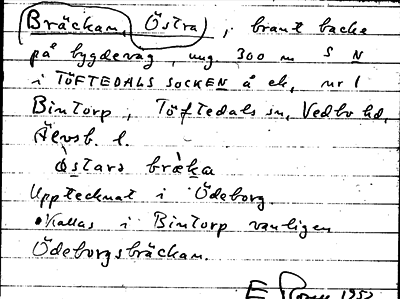 Bräckan, Östra, brant backe
på bygdeväg, ung 300 m S N
i TÖFTEDALS SOCKEN å ek, nr 1
Bintorp, Töftedals sn, Vedbo hd,
Älvsb. l.
östara bräka
Upptecknat i Ödeborg.
Kallas i Bintorp vanligen
Ödeborgsbräckan.
E 1952